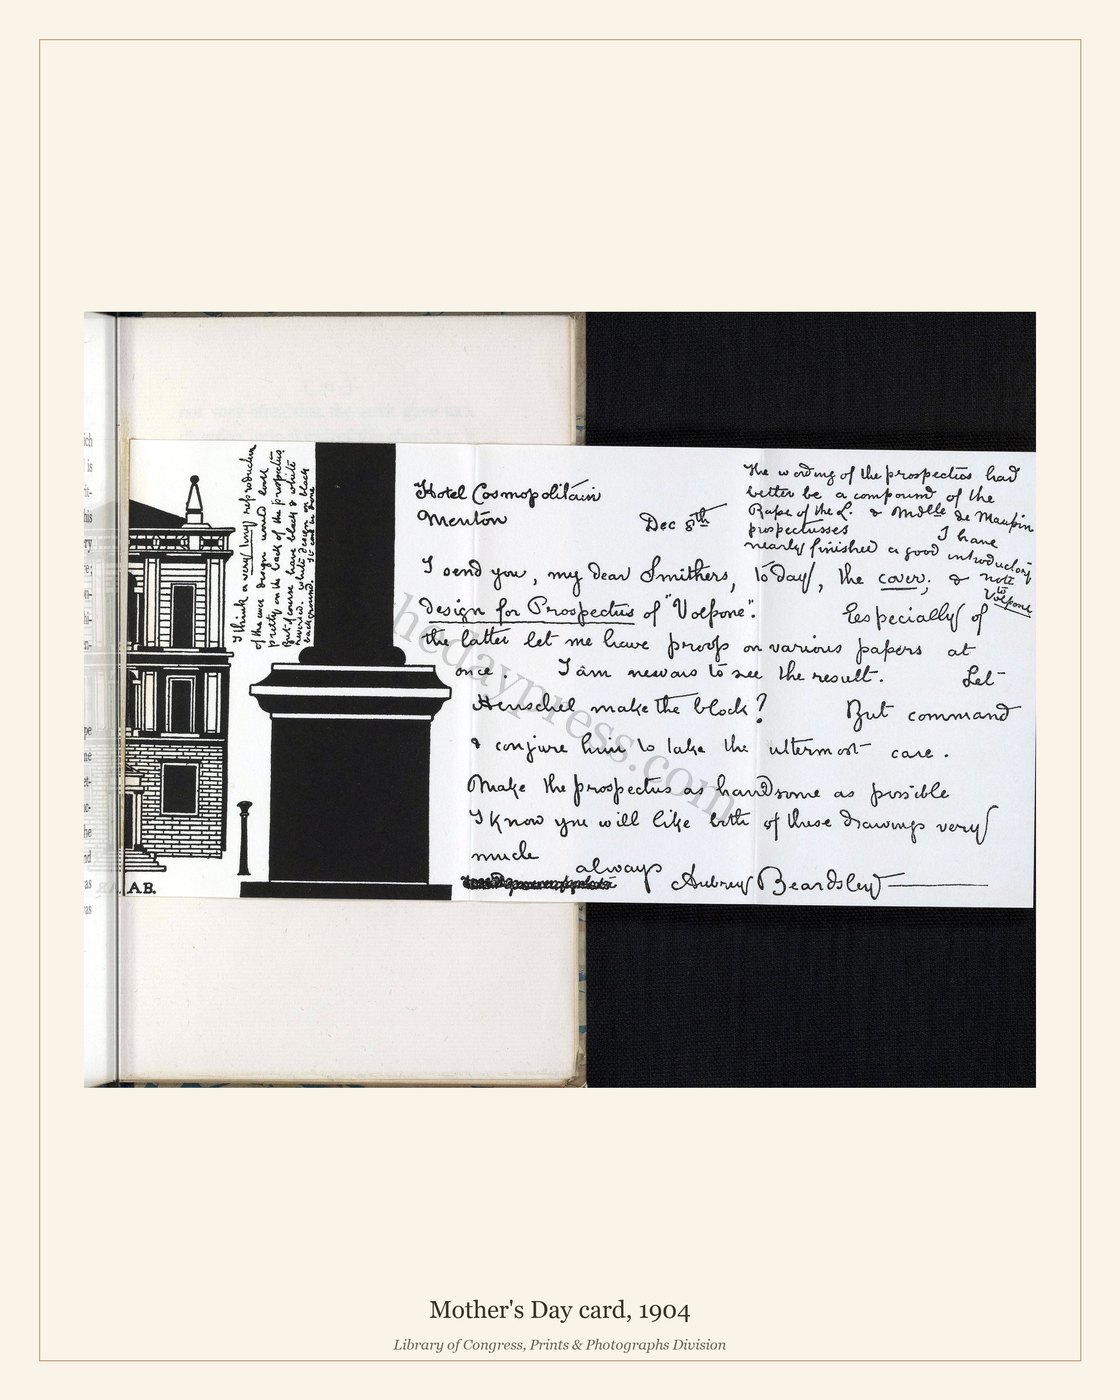 I think a very tiny reproduction
of the once design would look
pretty on the back of the prospectus
But of course have black & white
reversed. white design on black
background.
ich
is
fit-
this
ery
re;
on-
hi-
un-
pe
né
et-
oc-
he
nd
as
vas
AB.
Hotel Cosmopolitain
Menton
Dec 8th
I send you, my dear Smithers, to day, the cover; &
design for Prospectus of "Volpone".
Especially of
the latter let me have proofs on various papers at
once. I am nervous to see the result. Let
Henschel make the block? But command
& conjure him to take the uttermost care.
Make the prospectus as handsome as possible
I know you will like both of these drawings very
much
always Aubrey Beardsley
The wording of the prospectus had
better be a compound of the
Rape of the L. & Mdlle de Maupin
prospectusses
I have
nearly finished a good introductory
note
to
Volpone
hedaypress.com
Mother's Day card, 1904
Library of Congress, Prints & Photographs Division